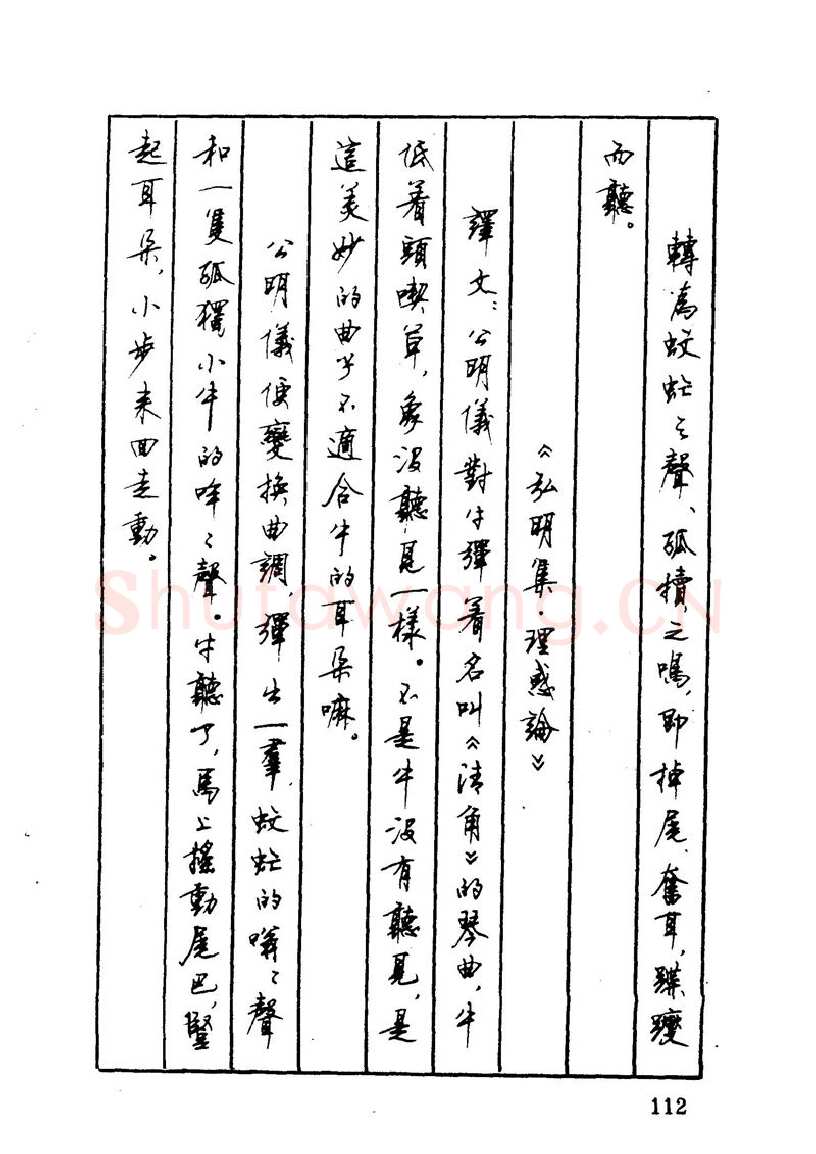 轉為蚊虻之聲、孤犢之鳴,即掉尾、奮耳,蹀躞
而聽。
《弘明集·理惑論》
譯文:公明儀對牛彈着名叫《清角》的琴曲,牛
低着頭喫草,象没聽見一樣。不是牛没有聽見,是
這美妙的曲子不適合牛的耳朵嘛。
公明儀便變換曲調,彈出一羣蚊虻的嗡〻聲
和一隻孤獨小牛的哞〻聲。牛聽了,馬上摇動尾巴,豎
起耳朵,小步来回走動。
Shufawang.CN
112